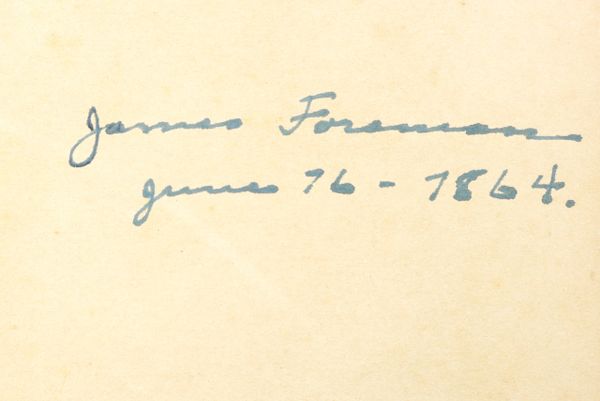 James Foreman
June 16 - 1864.